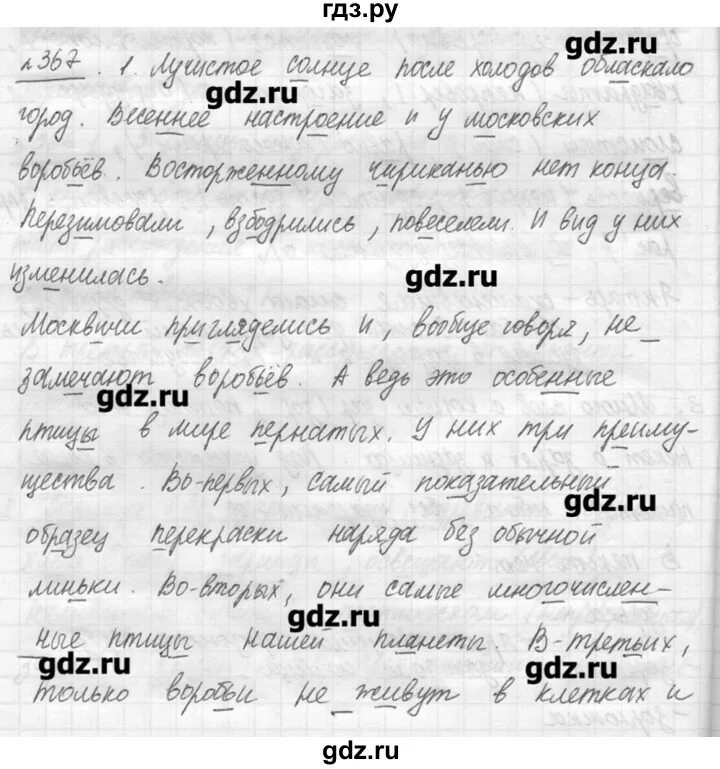 гдз.ру
gdz.ru
№367. 1. Лучистое солнце после холодов обласкало
gdz.ru
город. Весеннее настроение и у московских
воробьёв. Восторженному чириканью нет конца.
Перезимовали, взбодрились, повеселели. И вид у них
изменилась.
gdz.ru
Москвичи пригляделись и, вообще говоря, не
замечают воробьёв. А ведь это особенные
gdz.ru
птицы в мире пернатых. У них три преиму-
щества. Во-первых, самый показательный
gdz.ru
образец перекраски наряда без обычной
линьки. Во-вторых, они самые многочислен-
gdz.ru
ные птицы нашей планеты. В-третьих,
gdz.ru
gdz.ru
только воробьи не живут в клетках и
gdz.ru